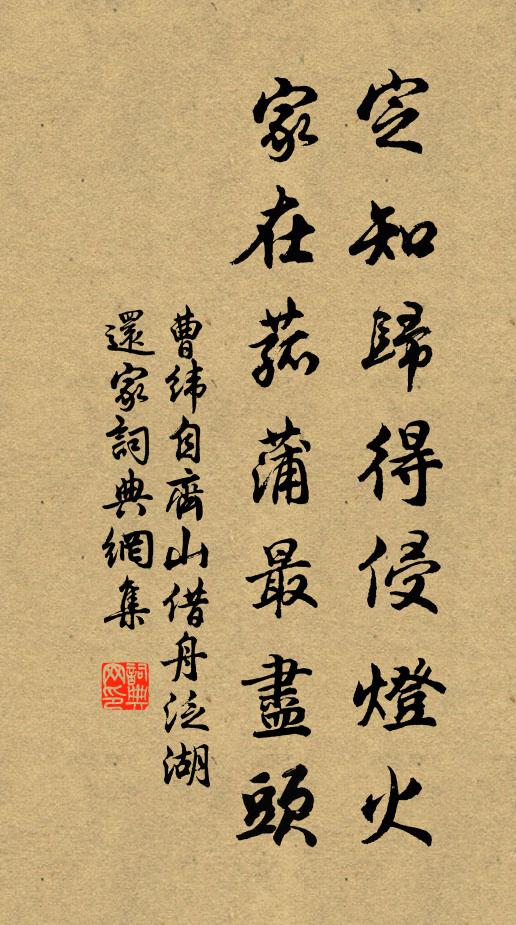 定知歸得侵燈火
家在菰蒲最盡頭
曹緯自齊山借舟泛湖
還家詞典網集
詞典
网印